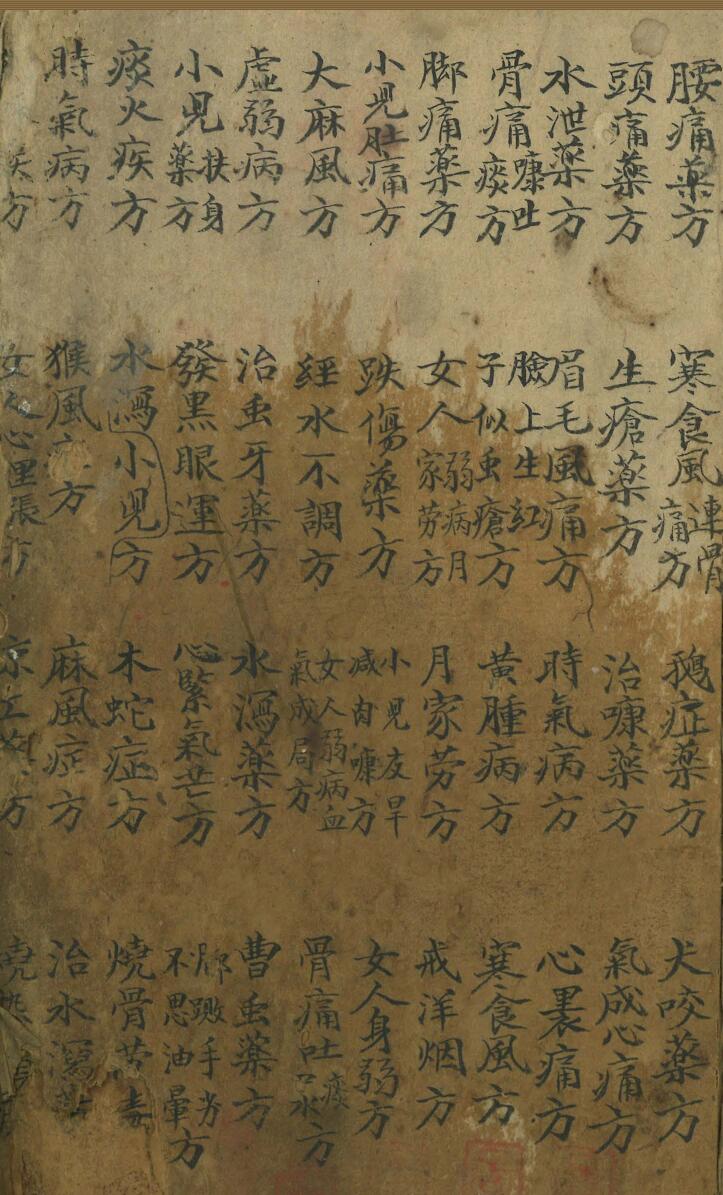 腰痛薬方
頭痛薬方
水泄薬方
骨痛㾿吐痰方
脚痛薬方
小児肚痛方
大麻風方
虚弱病方
小児扶身薬方
痰火疾方
時氣病方
疾方
寒食風連骨痛方
生瘡薬方
眉毛風痛方
臉上生紅子似虫瘡方
女人弱病月家劳方
跌傷薬方
經水不調方
治虫牙薬方
發黒眼運方
水瀉小児方
猴風方
女人心里張方
鵝症薬方
治㾿薬方
時氣病方
黄腫病方
月家劳方
小児友旱减肉㾿方
女人弱病血氣成局方
水瀉薬方
心緊氣芒方
木蛇症方
麻風症方
方
犬咬薬方
氣成心痛方
心裏痛方
寒食風方
戒洋烟方
女人身弱方
骨痛吐痰口水方
曹虫薬方
脚跛手劳不思油暈方
燒骨劳
治水瀉